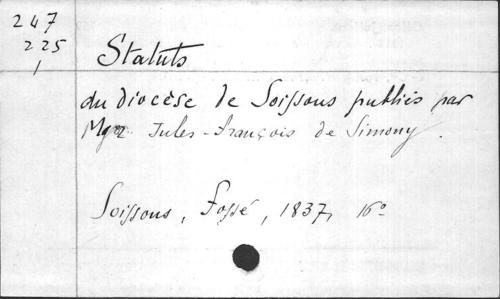 247
225
1
Statuts
du diocèse de Soissons publiés par
Mgr Jules-François de Simony.
Soissons, Fossé, 1837, 16°